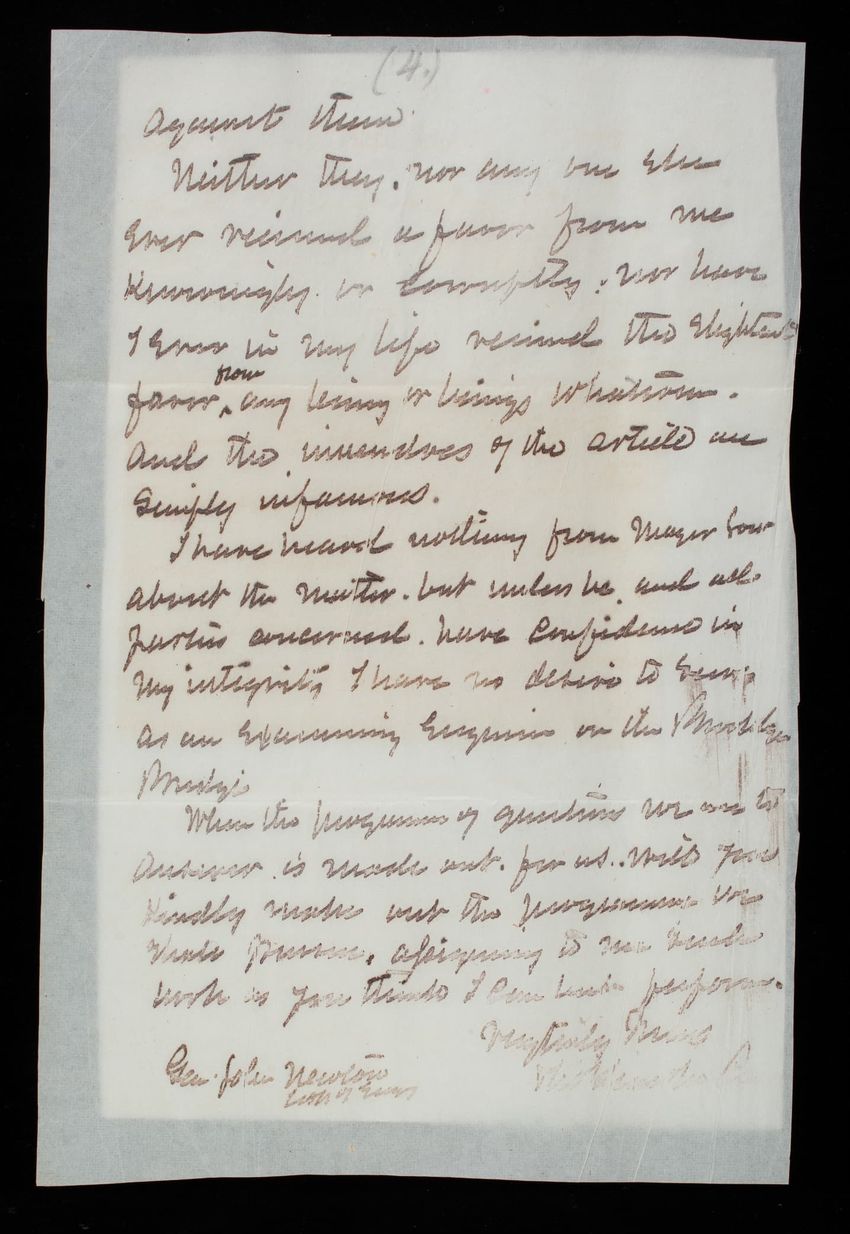 (4.)
against them.
Neither they, nor any one else
ever received a favor from me
knowingly or corruptly; nor have
I ever in my life received the slightest
favor from any being or beings whatsoever.
And the innuendoes of the article are
simply infamous.
I have heard nothing from Mayor Low
about the matter. but unless he, and all
parties concerned. have confidence in
my integrity I have no desire to serve
as an Examining Engineer on the Brooklyn
Bridge
When the programme of questions we are to
answer is made out. for us. will you
kindly make out the programme we
shall pursue, assigning to me such
work as you think I can best perform.
Very truly Yours
Gen. John Newton
Corps of Engrs